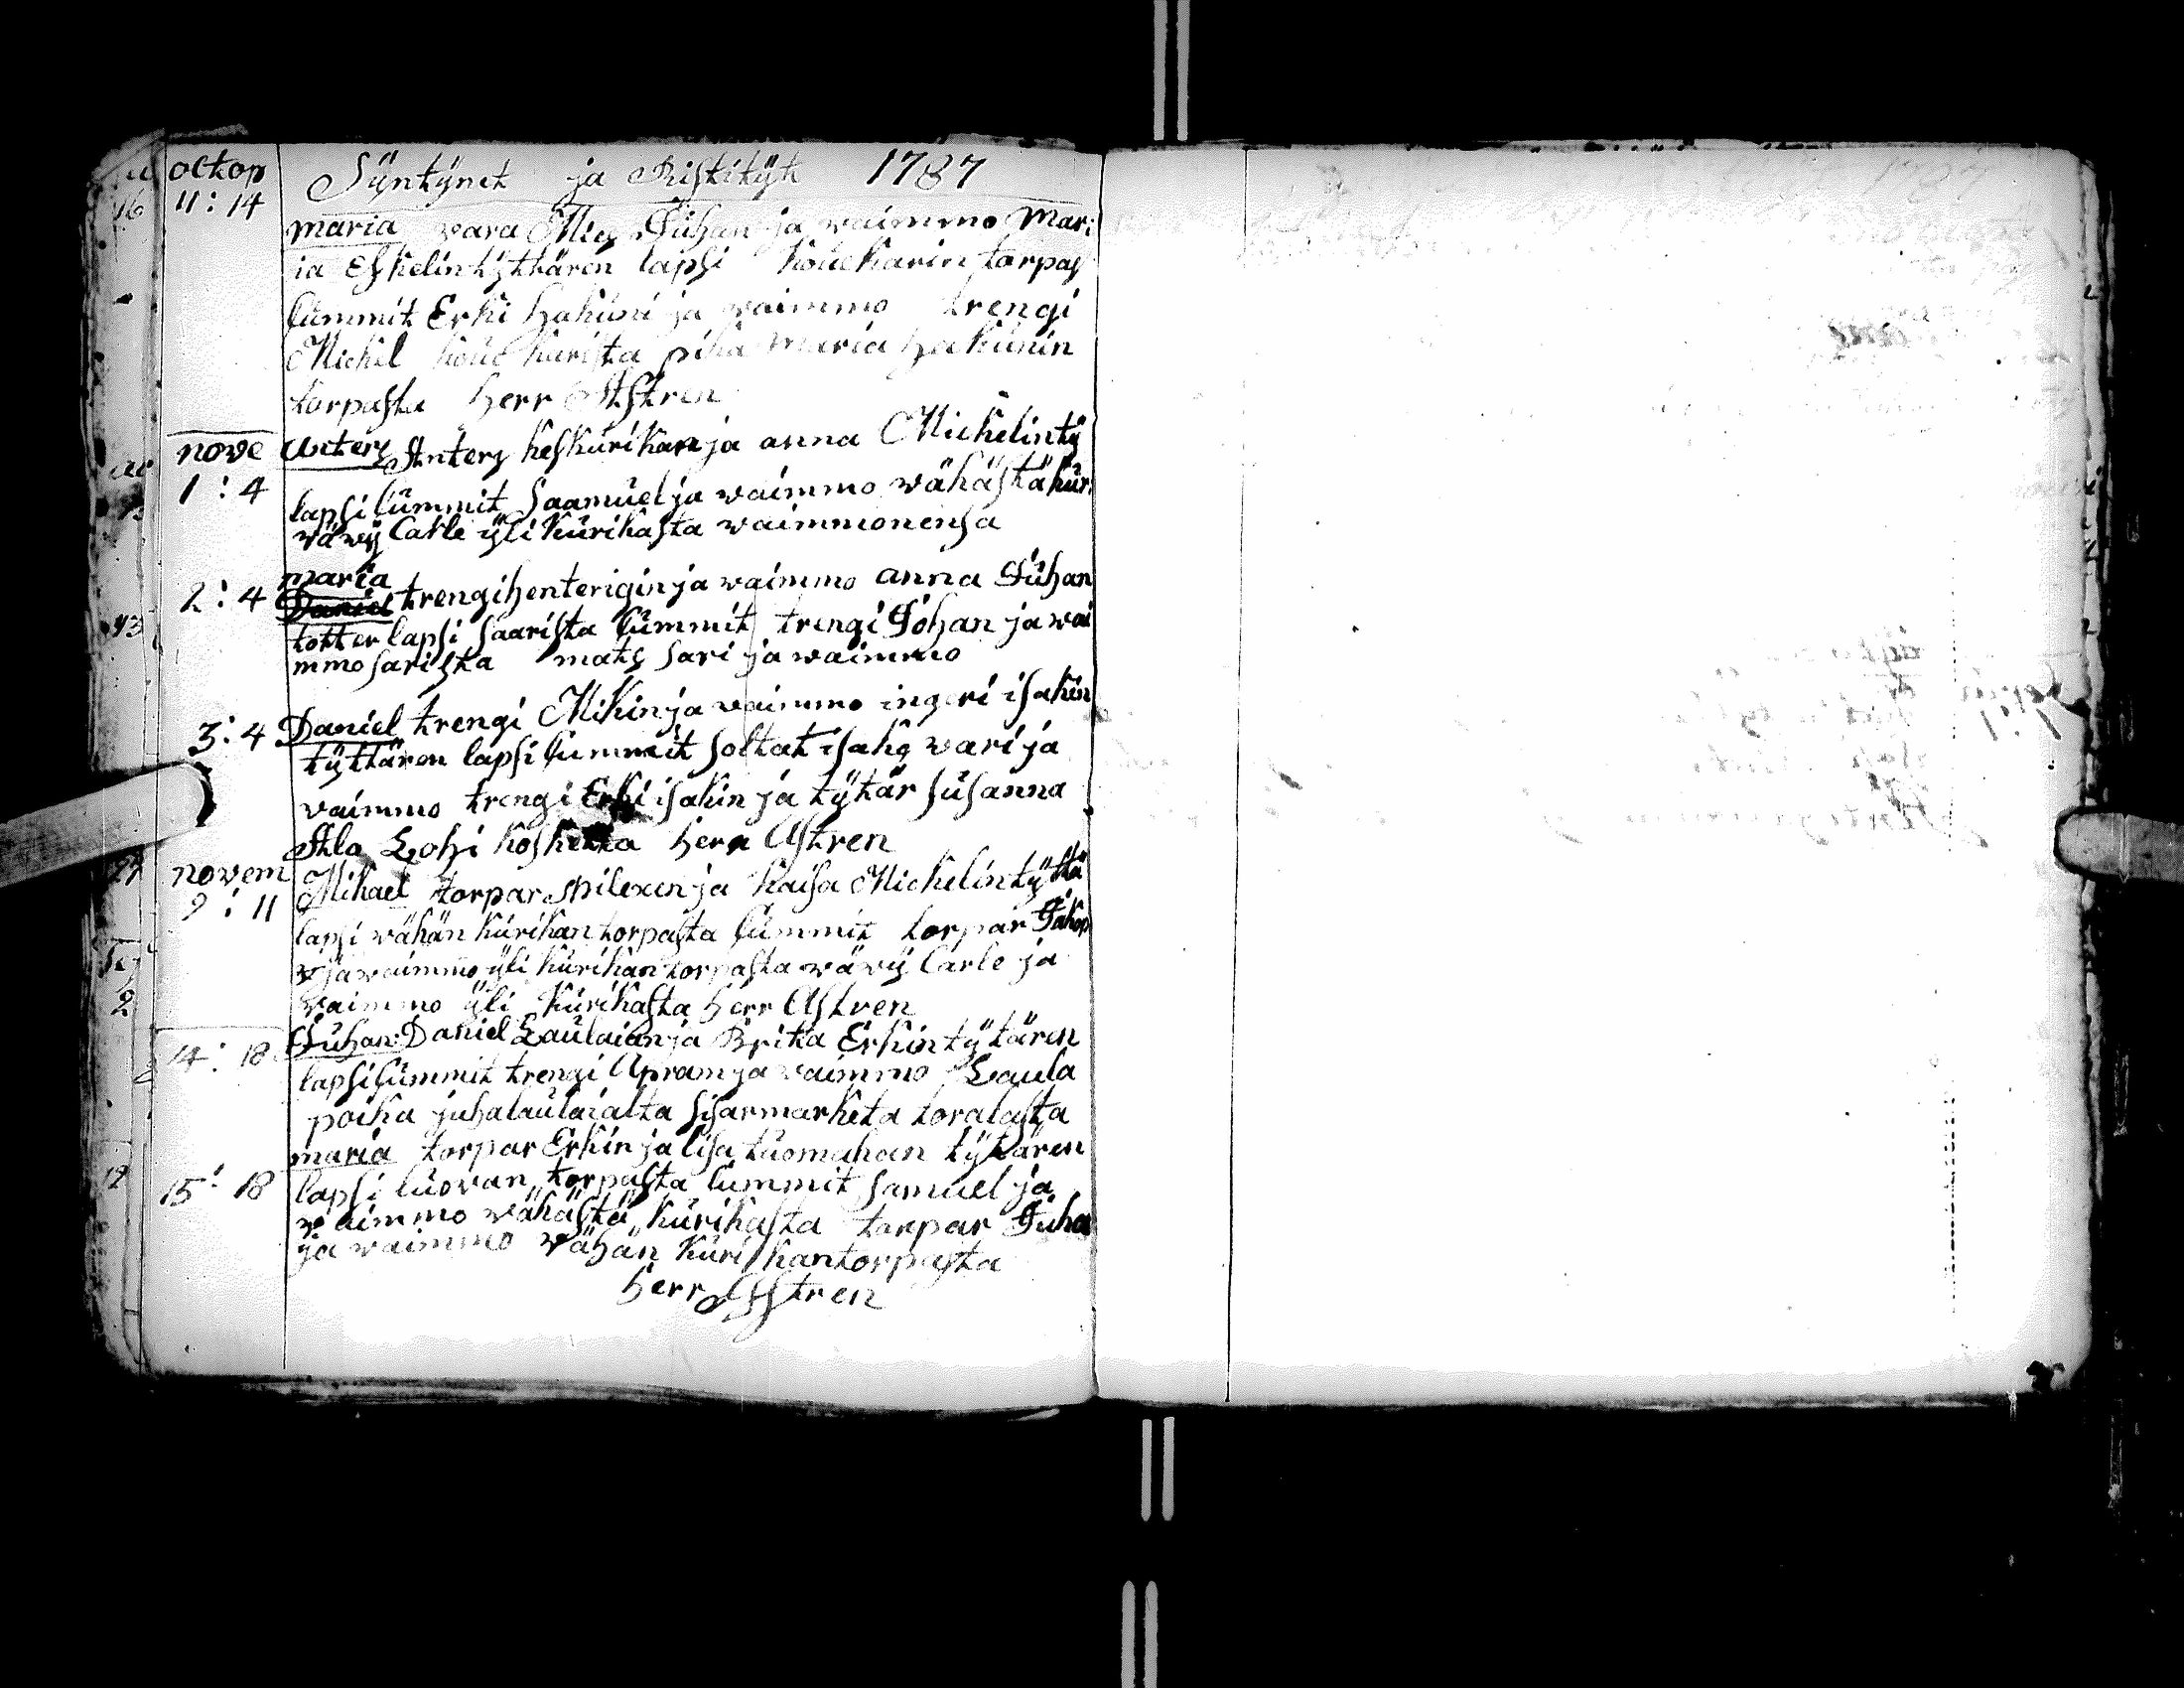 octop Sÿntÿnet ja Ristitÿt 1787
11 : 14
maria vara Mies Juhan ja waimmo Mari
ia Eskelin tÿttären lapsi kouekarin torpas
lümmit Erki hakuni ja waimmo trengi
Michel koue kurista pika maria hakunin
torpasta herr Astren
nove Anters Anters keskurikan ja anna Michelintÿ
1 : 4 lapsi lümmit Saamuel ja waimmo wähästä kur
wäwÿ Carle ÿli kurikasta waimmonensa
maria
2 : 4 Daniel trengi henterigin ja waimmo anna Juhan
totter lapsi saarista lümmit trengi Johan ja wai
mmo sarista mats sari ja waimmo
3 : 4 Daniel trengi Mikin ja waimmo ingeri isakin
tÿttären lapsi lummit soltat isahq wari ja
waimmo trengi Erki isakin ja tÿtär susanna
Ala Lohi koskelta herr Astren
novem Mihael torpar spilexen ja kaisa Michelin tÿttä
9 : 11 lapsi wähän kurikan torpasta lümmit torpar Jakop
ja waimmo ÿli kurikan torpasta wäwÿ Carle ja
waimmo ÿli kurikasta herr Astren
14 : 18 Juhan Daniel Laulaian ja Brita Erkin tÿtären
lapsi lümmit trengi Apram ja waimmo Laula
poika juha laulaialta sisar marketa loralasta
maria torpar Erkin ja lisa tuomahan tÿtären
15 : 18 lapsi luovan torpasta lümmit samuel ja
waimmo wähästä kurikasta torpar Juha
ja waimmo wähän kurikan torpasta
herr Astren